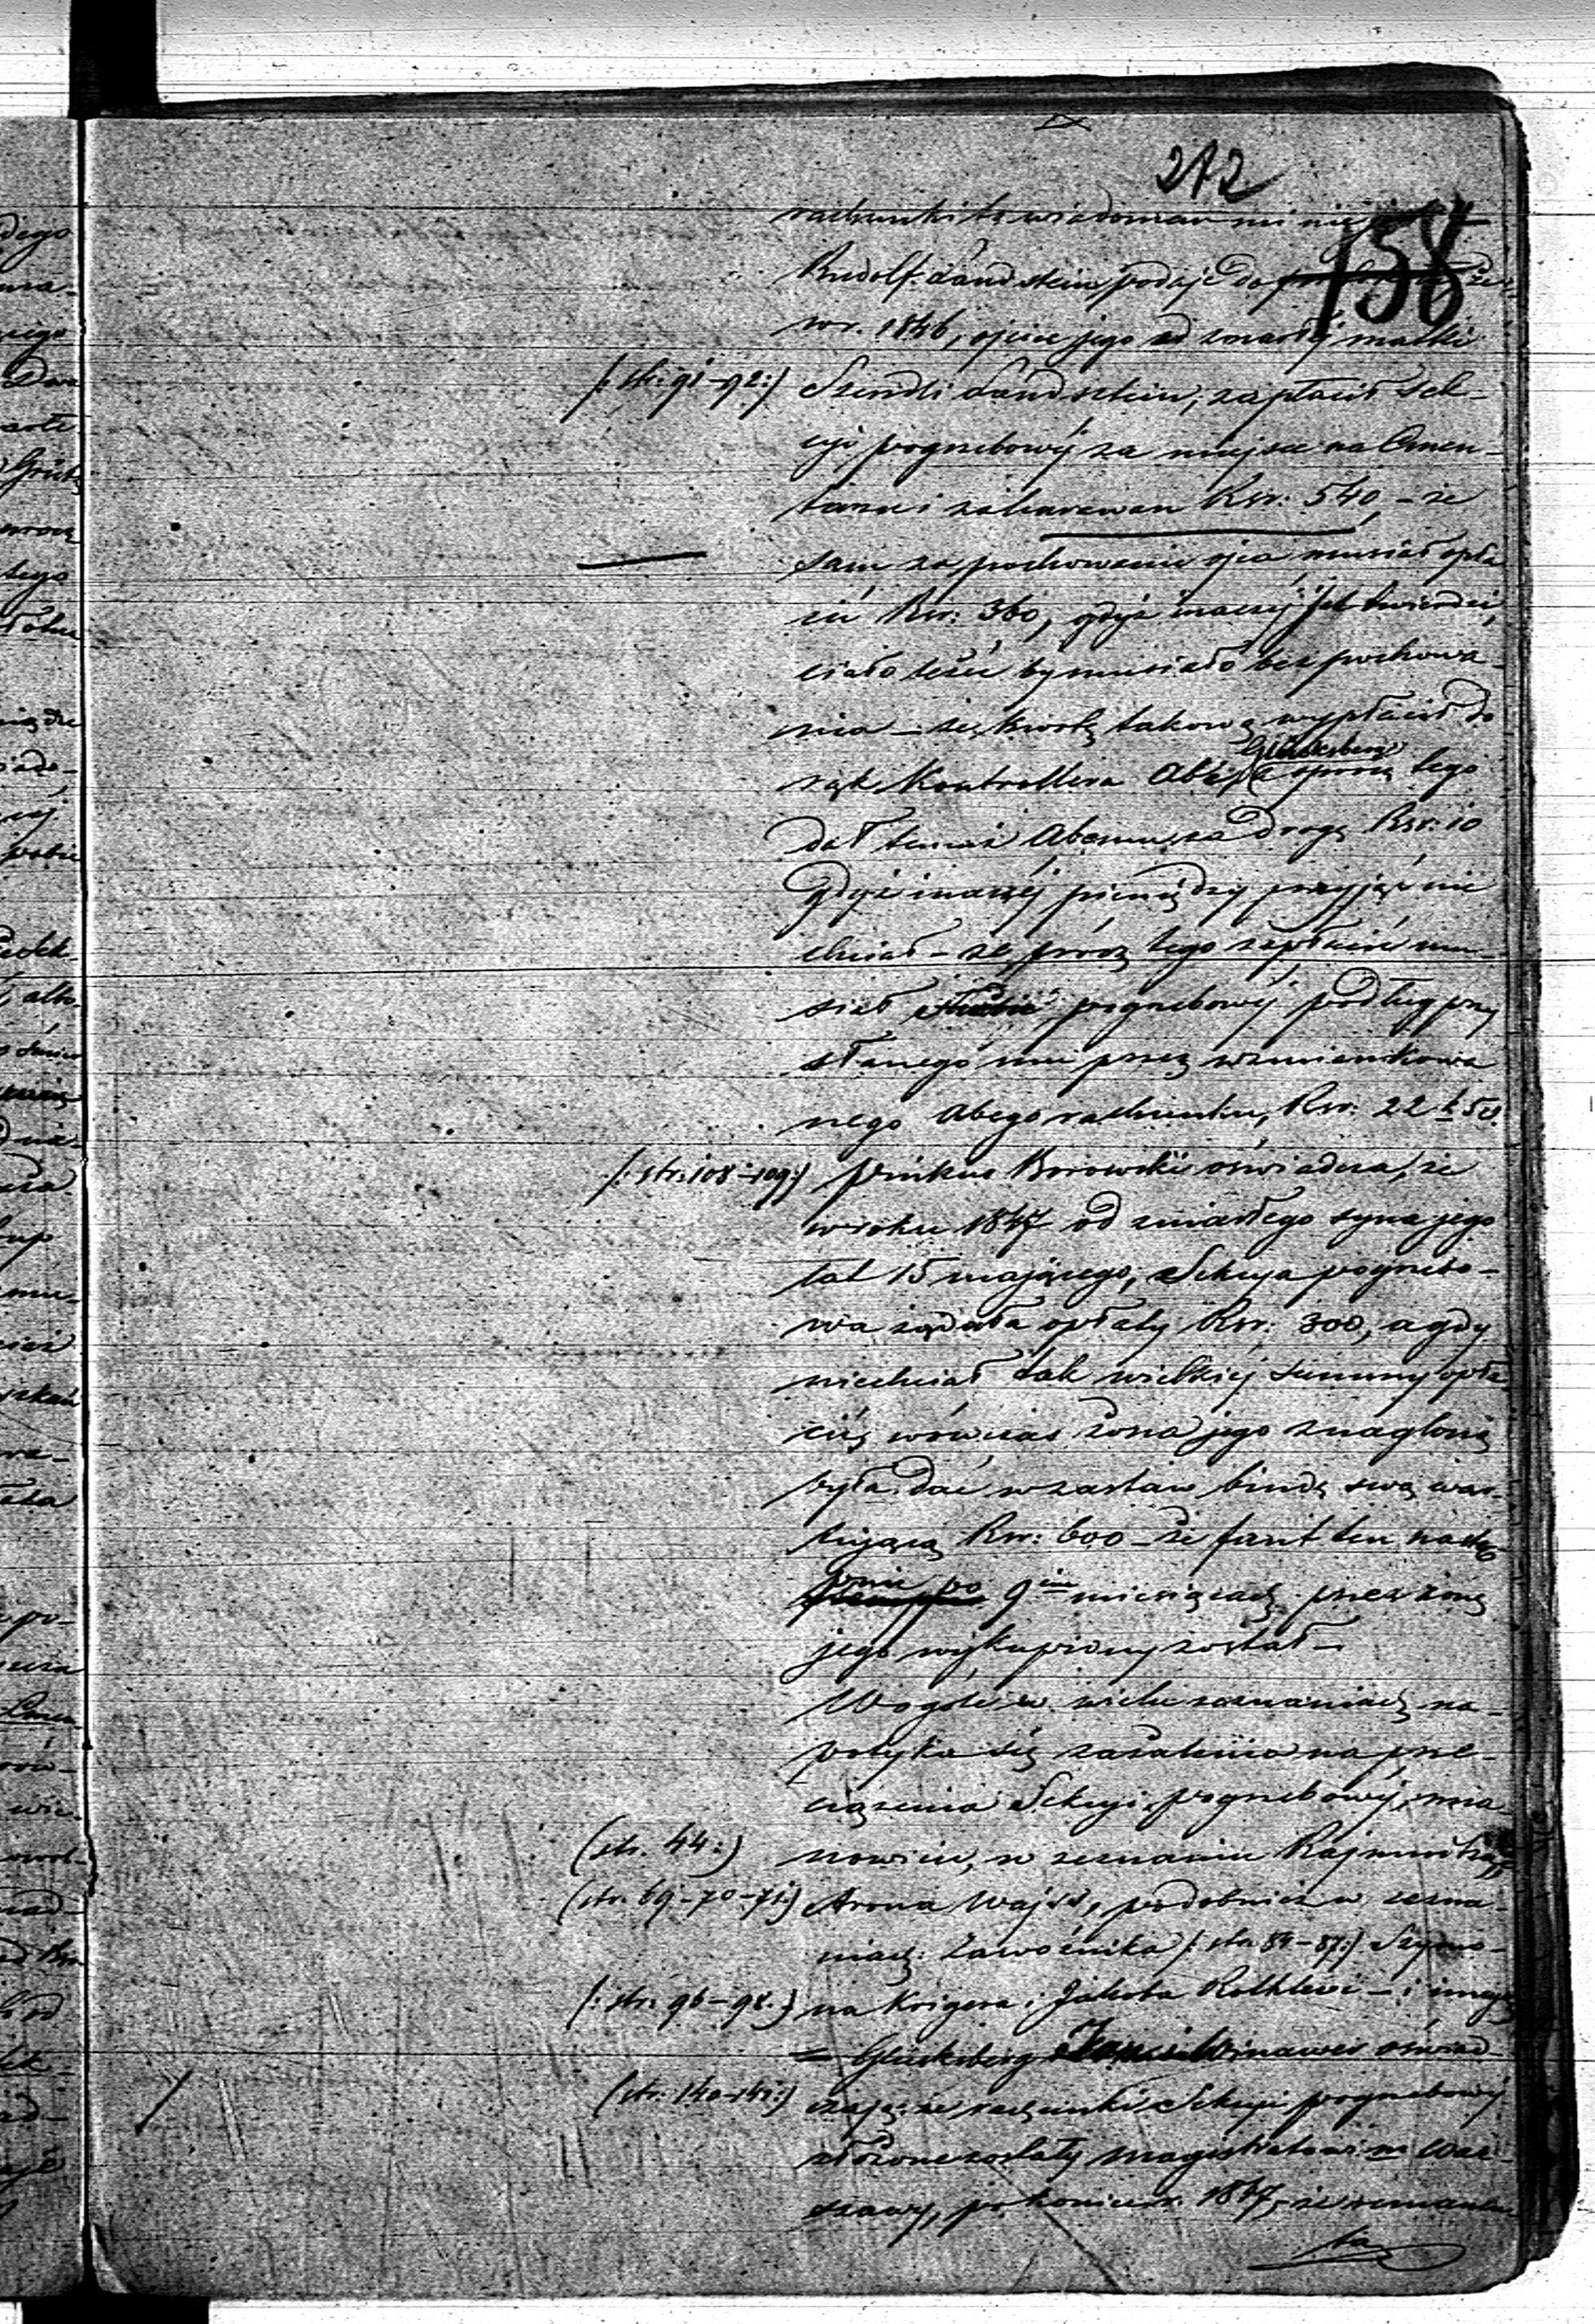 212
158
rachunki te wiadomemi mi nie
Rudolf Landstein podaje do że
w r. 1846, ojciec jego od zmarłej matki
/: str: 91-92:/ Szendli Landsztein, zapłacił Sek-
cyi pogrzebowéj za miejsce na Cmen-
tarzu i zakarawan Rsr: 540, - że
sam za pochowanie ojca musiał opła
cić Rsr: 360, gdyż inaczéj jak twierdzi,
ciało leżeć by musiało bez pochowa-
nia - że kwotę takową wypłacił do
Glücksberg
rąk Kontrollera Abe, a oprócz tego
dał temuż Abemu za drogę Rsr: 10
gdyż inaczéj pieniędzy przyjąć nie
chciał - że prócz tego zapłacić mu-
siał pogrzebowéj podług przy
słanego mu przez wzmiankowa
nego Abego rachunku, Rsr: 22 k 50.
/: str: 108-109:/ Pinkus Borowski oświadcza, że
w roku 1847 od zmarłego syna jego
lat 15 mającego, Sekcya pogrzebo-
wa żądała opłaty Rsr: 300, a gdy
niechciał tak wielkiéj summy opła
cić, wówczas żona jego znaglona
była dać w zastaw bindę swą war-
tującą Rsr: 600 - że fant ten nastę-
pnie po 9ciu miesiącach przez żonę
jego wykupiony został -
Wogóle w wielu zeznaniach na-
potyka się zażalenia na prze-
ciążenia Sekcyi pogrzebowéj, mia-
(str. 44:) nowicie, w zeznaniu
(str. 69-70-71:) Arona Wajss, podobnież w zezna-
niach Zawoźnika /: str 84-87:/ Szymo-
/: str: 96-98:/ na Krigera i Jakóba - i innych
Glücksberg Winawer oświad-
(str: 140-141:) czają: że rachunki Sekcyi pogrzebowéj
złożone zostały magistratowi m War-
szawy, po koniec r. 1847, że